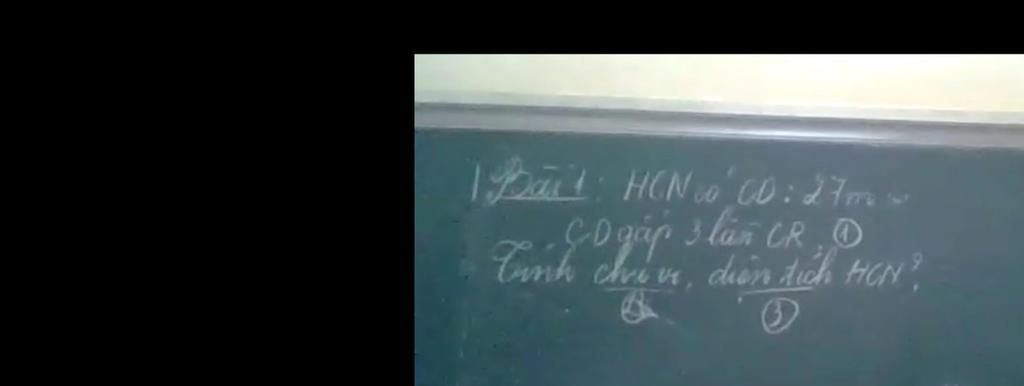 Bài 1: HCN có CD: 27m
CD gấp 3 lần CR ①
Tính chu vi, diện tích HCN?
② ③